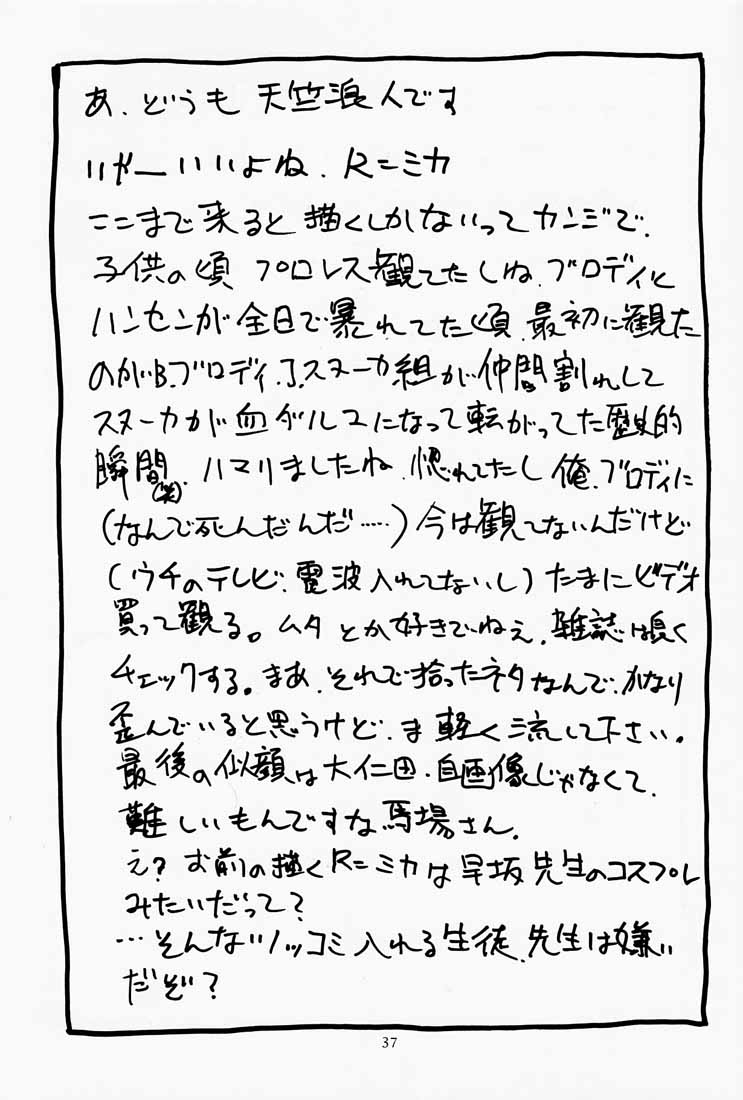 あ、どうも 天竺浪人です
いやーいいよね、R=ミカ
ここまで来ると描くしかないってカンジで、
子供の頃 プロレス観てたしね、ブロディと
ハンセンが全日で暴れてた頃、最初に観た
のがB.ブロディ、J.スヌーカ組が仲間割れして
スヌーカが血ダルマになって転がってた歴史的
瞬間(笑)、ハマりましたね、惚れてたし 俺、ブロディに
(なんで死んだんだ……)今は観てないんだけど
(ウチのテレビ、電波入れてないし)たまにビデオ
買って観る。ムタとか好きでねえ、雑誌は良く
チェックする。まあ、それで拾ったネタなんで、かなり
歪んでいると思うけど、ま 軽く流して下さい。
最後の似顔は大仁田、自画像じゃなくて、
難しいもんですな馬場さん、
え?お前の描くR=ミカは早坂先生のコスプレ
みたいだって?
…そんなツッコミ入れる生徒、先生は嫌い
だぞ?
37